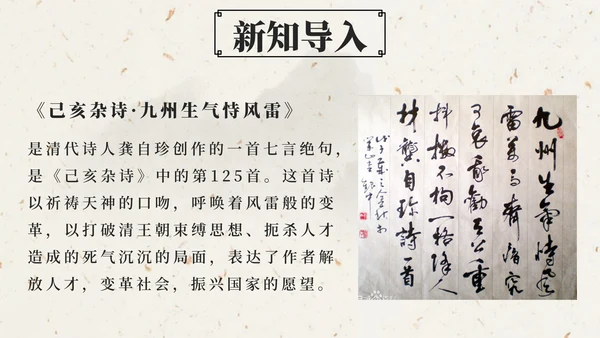 新知导入
《己亥杂诗·九州生气恃风雷》
是清代诗人龚自珍创作的一首七言绝句，
是《己亥杂诗》中的第125首。这首诗
以祈祷天神的口吻，呼唤着风雷般的变
革，以打破清王朝束缚思想、扼杀人才
造成的死气沉沉的局面，表达了作者解
放人才，变革社会，振兴国家的愿望。
九州生气恃风
雷万马齐喑究
可哀我劝天公重
抖擞不拘一格降人
材龚自珍詩一首